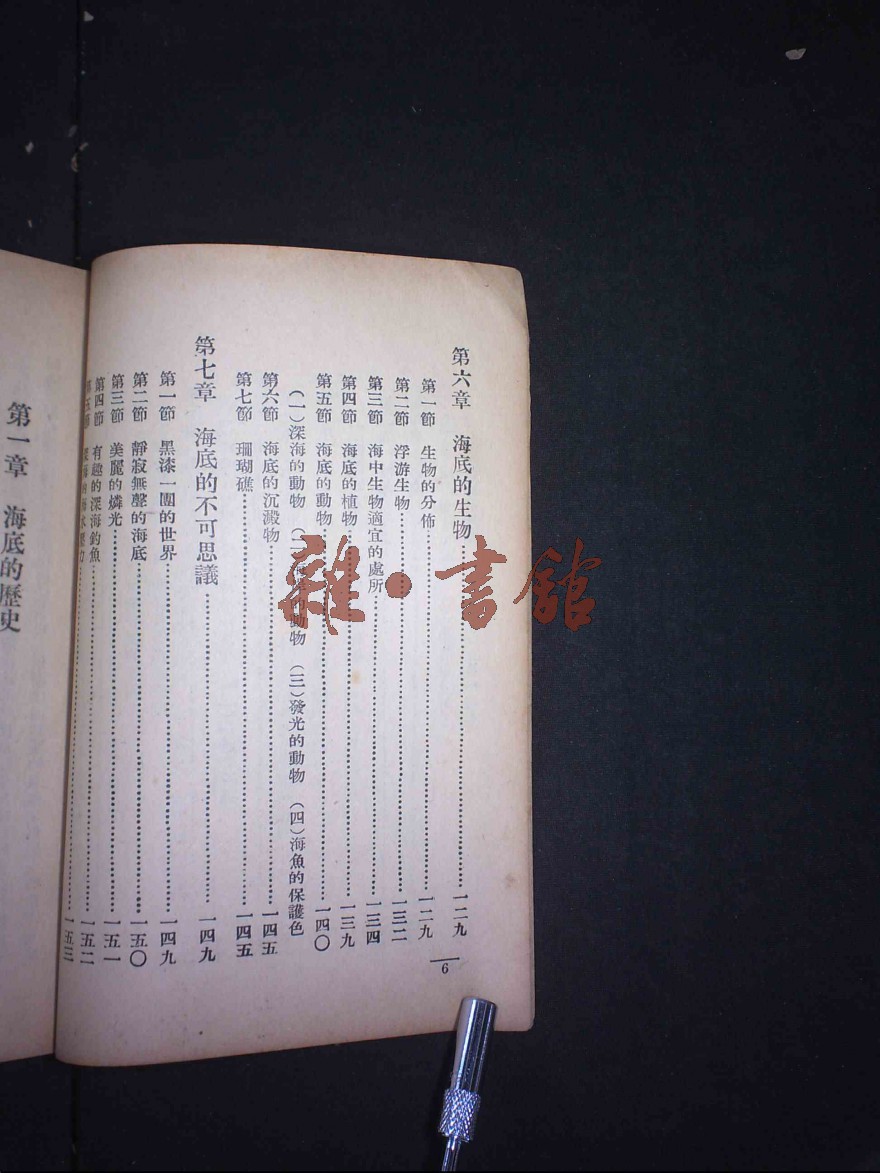 第六章 海底的生物………一二九
第一節 生物的分佈………一二九
第二節 浮游生物………一三二
第三節 海中生物適宜的處所………一三四
第四節 海底的植物………一三九
第五節 海底的動物………一四〇
(一)深海的動物 (二) 的動物 (三)發光的動物 (四)海魚的保護色
第六節 海底的沉澱物………一四五
第七節 珊瑚礁………一四五
第七章 海底的不可思議………一四九
第一節 黑漆一團的世界………一四九
第二節 靜寂無聲的海底………一五〇
第三節 美麗的燐光………一五一
第四節 有趣的深海釣魚………一五二
第五節 力………一五三
6
第一章 海底的歷史
雜·書館